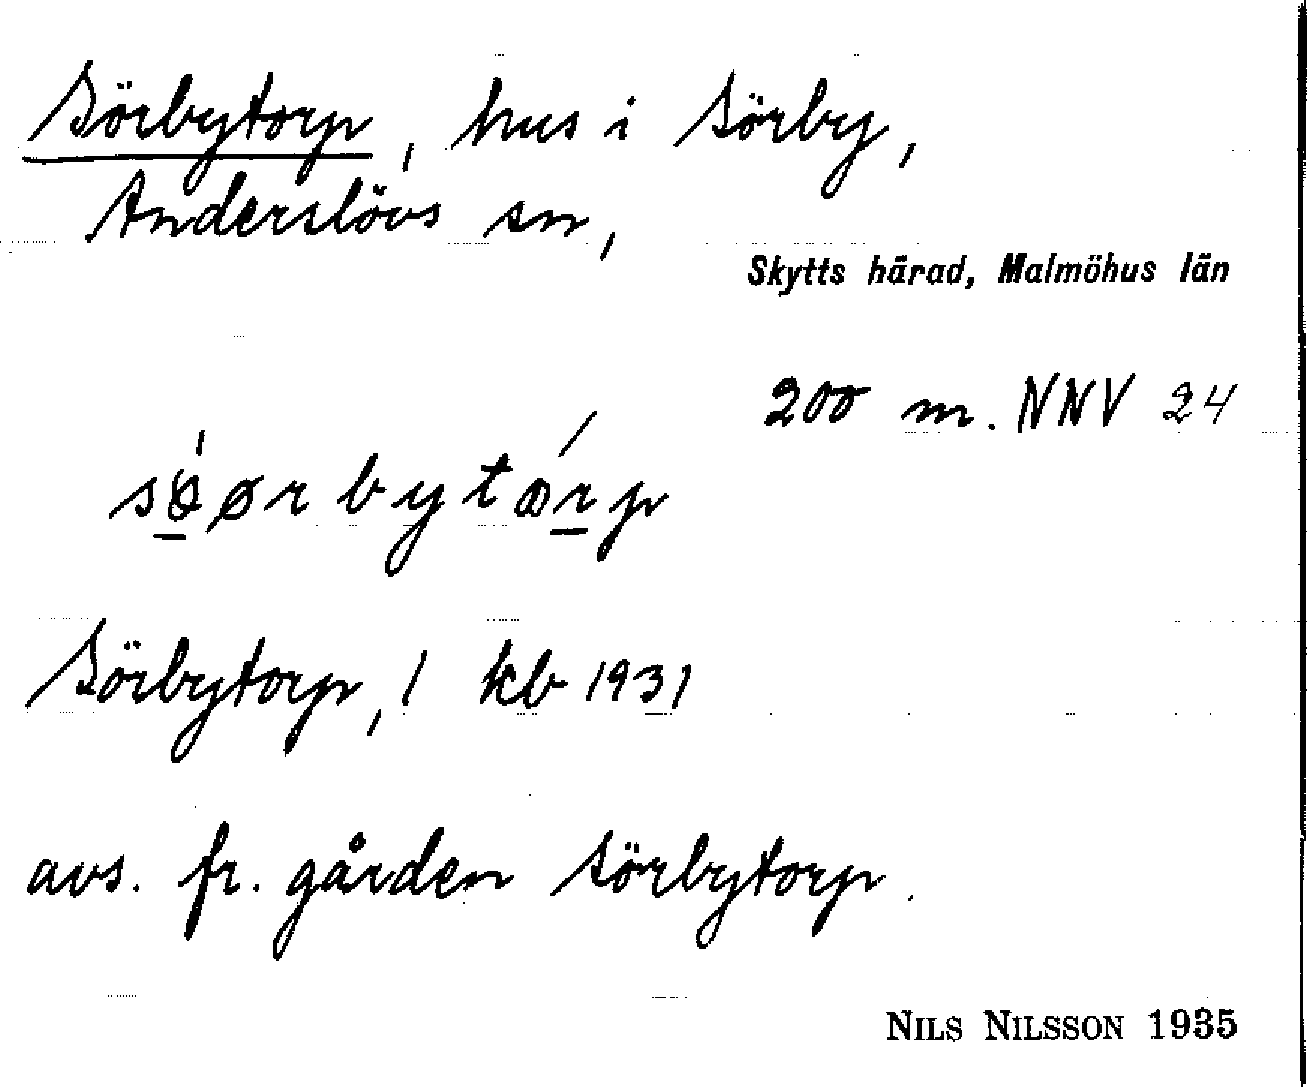 Sörbytorp, hus i Sörby,
Anderslövs sn,
Skytts härad, Malmöhus län
200 m. NNV 24
Sörbytorp, 1 kb 1931
avs. fr. gården Sörbytorp.
NILS NILSSON 1935